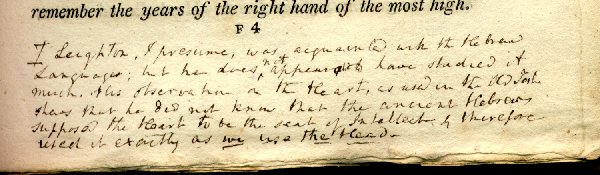 remember the years of the right hand of the most high.
F 4
I Leighton, I presume, was acquainted with the Hebrew
Language; but he does not appear to have studied it
much. His observation on the Heart, as used in the Old Test.
shews that he did not know that the ancient Hebrews
supposed the Heart to be the seat of Intellect & therefore
used it exactly as we use the Head.